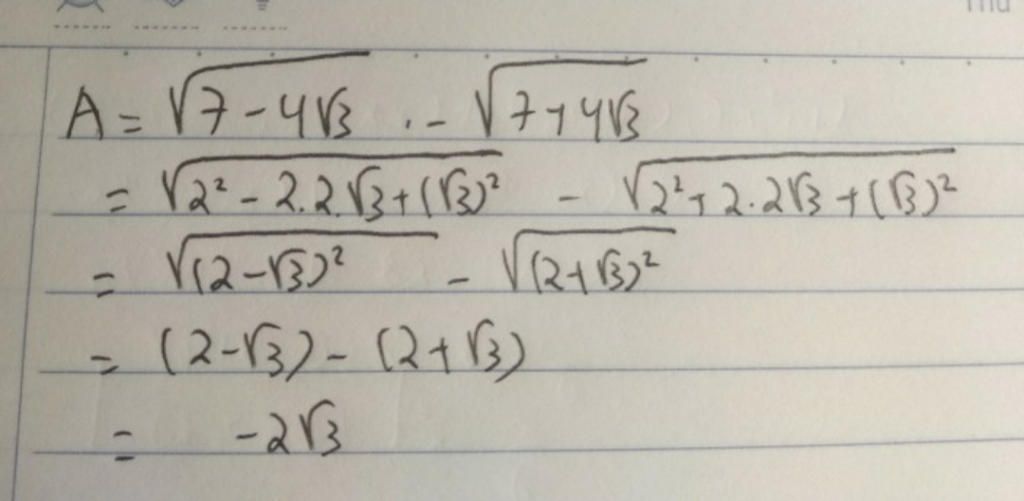 Thu
A = √(7 - 4√3) . - √(7 + 4√3)
= √(2² - 2.2.√3 + (√3)²) - √(2² + 2.2√3 + (√3)²)
= √((2 - √3)²) - √((2 + √3)²)
= (2 - √3) - (2 + √3)
= -2√3